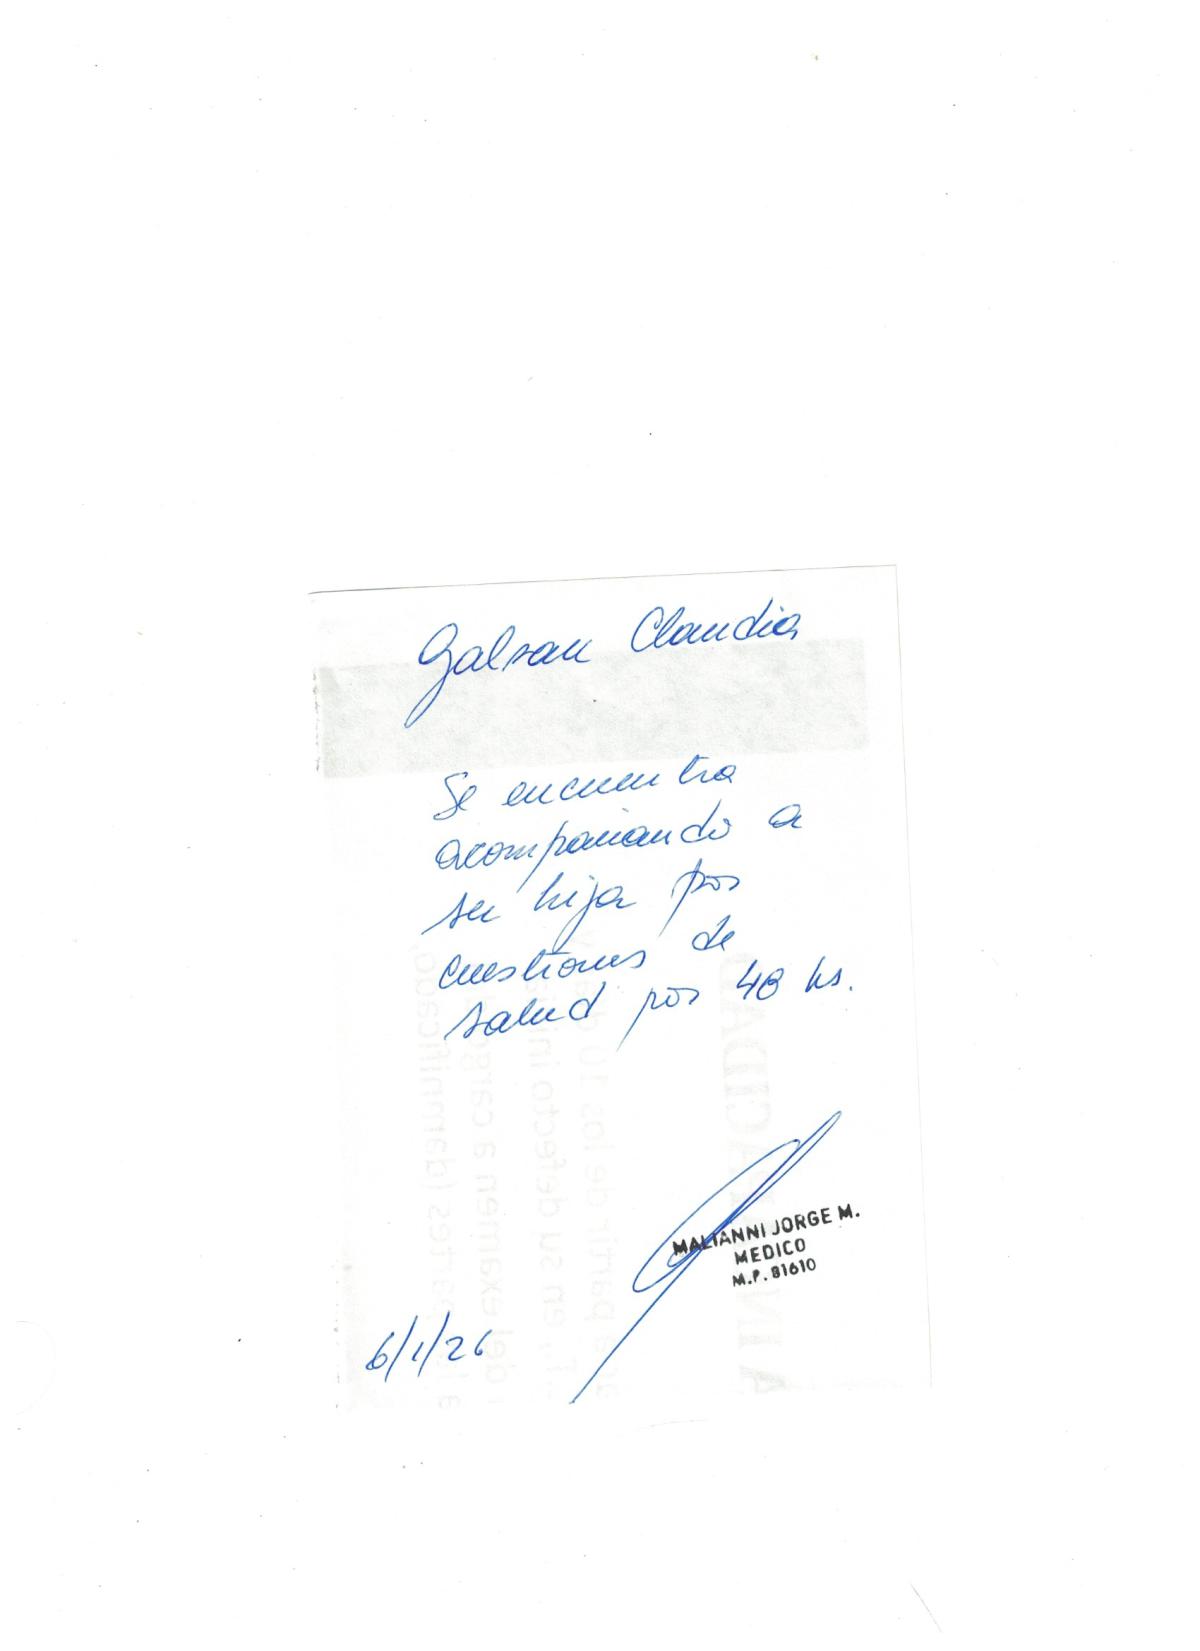 Galvan Claudia
Se encuentra
acompañando a
su hija por
cuestiones de
salud por 48 hs.
MALIANNI JORGE M.
MEDICO
M.P. 81610
6/1/26